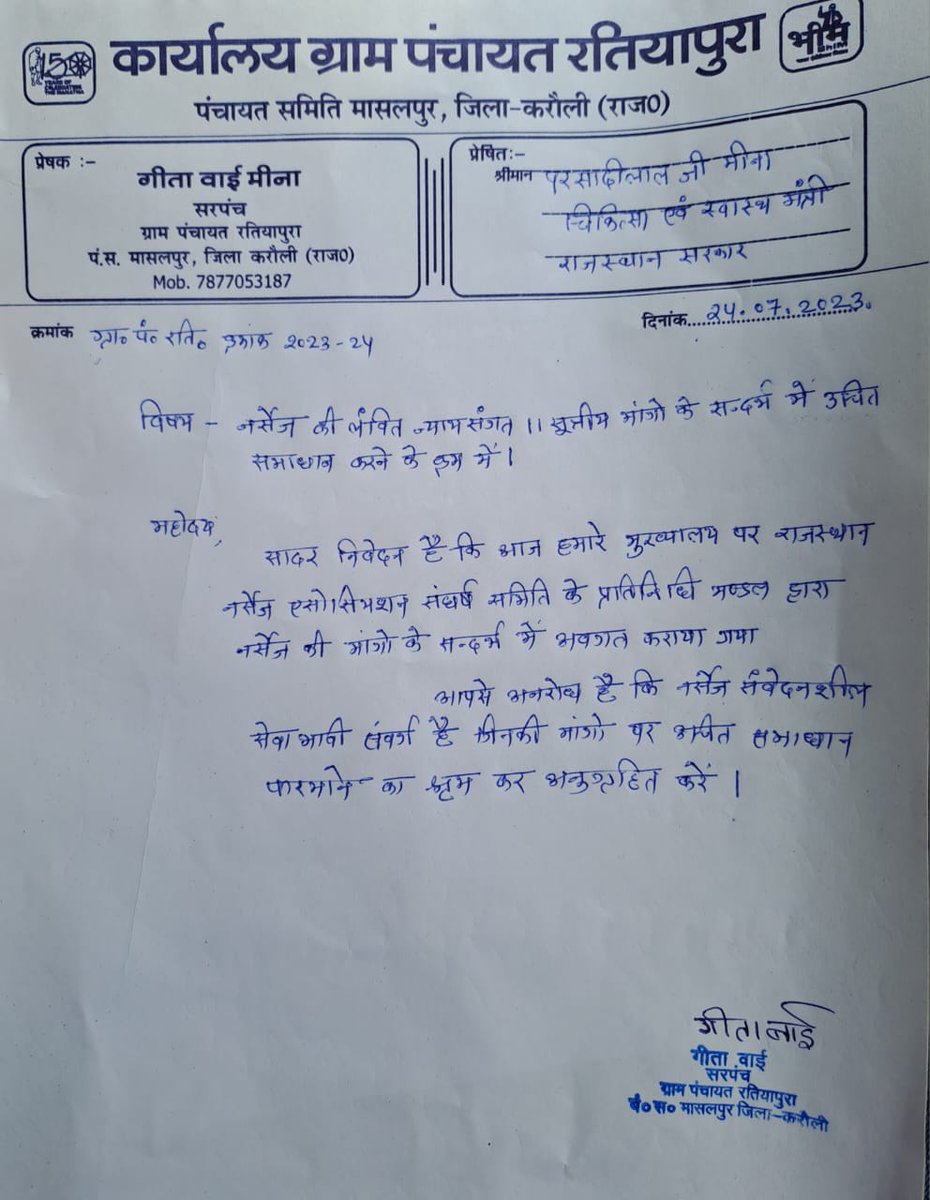 150
YEARS OF
CELEBRATING
THE MAHATMA
भीम
BHIM
कार्यालय ग्राम पंचायत रतियापुरा
पंचायत समिति मासलपुर, जिला-करौली (राज0)
प्रेषक :-
गीता वाई मीना
सरपंच
ग्राम पंचायत रतियापुरा
पं.स. मासलपुर, जिला करौली (राज0)
Mob. 7877053187
प्रेषित:-
श्रीमान परसादीलाल जी मीना
चिकित्सा एवं स्वास्थ मंत्री
राजस्थान सरकार
क्रमांक ग्रा० पं० रति० क्रमांक 2023-24
दिनांक 24.07.2023.
विषय - नर्सेज की लंबित न्यायसंगत 11 सूत्रीय मांगो के सन्दर्भ में उचित
समाधान करने के क्रम में।
महोदय,
सादर निवेदन है कि आज हमारे मुख्यालय पर राजस्थान
नर्सेज एसोसिएशन संघर्ष समिति के प्रतिनिधि मण्डल द्वारा
नर्सेज की मांगो के सन्दर्भ में अवगत कराया गया
आपसे अनरोध है कि नर्सेज संवेदनशील
सेवाभावी संवर्ग है जिनकी मांगो पर उचित समाधान
फरमाने का श्रम कर अनुग्रहित करें।
गीता बाई
गीता वाई
सरपंच
ग्राम पंचायत रतियापुरा
पं०स० मासलपुर जिला-करौली